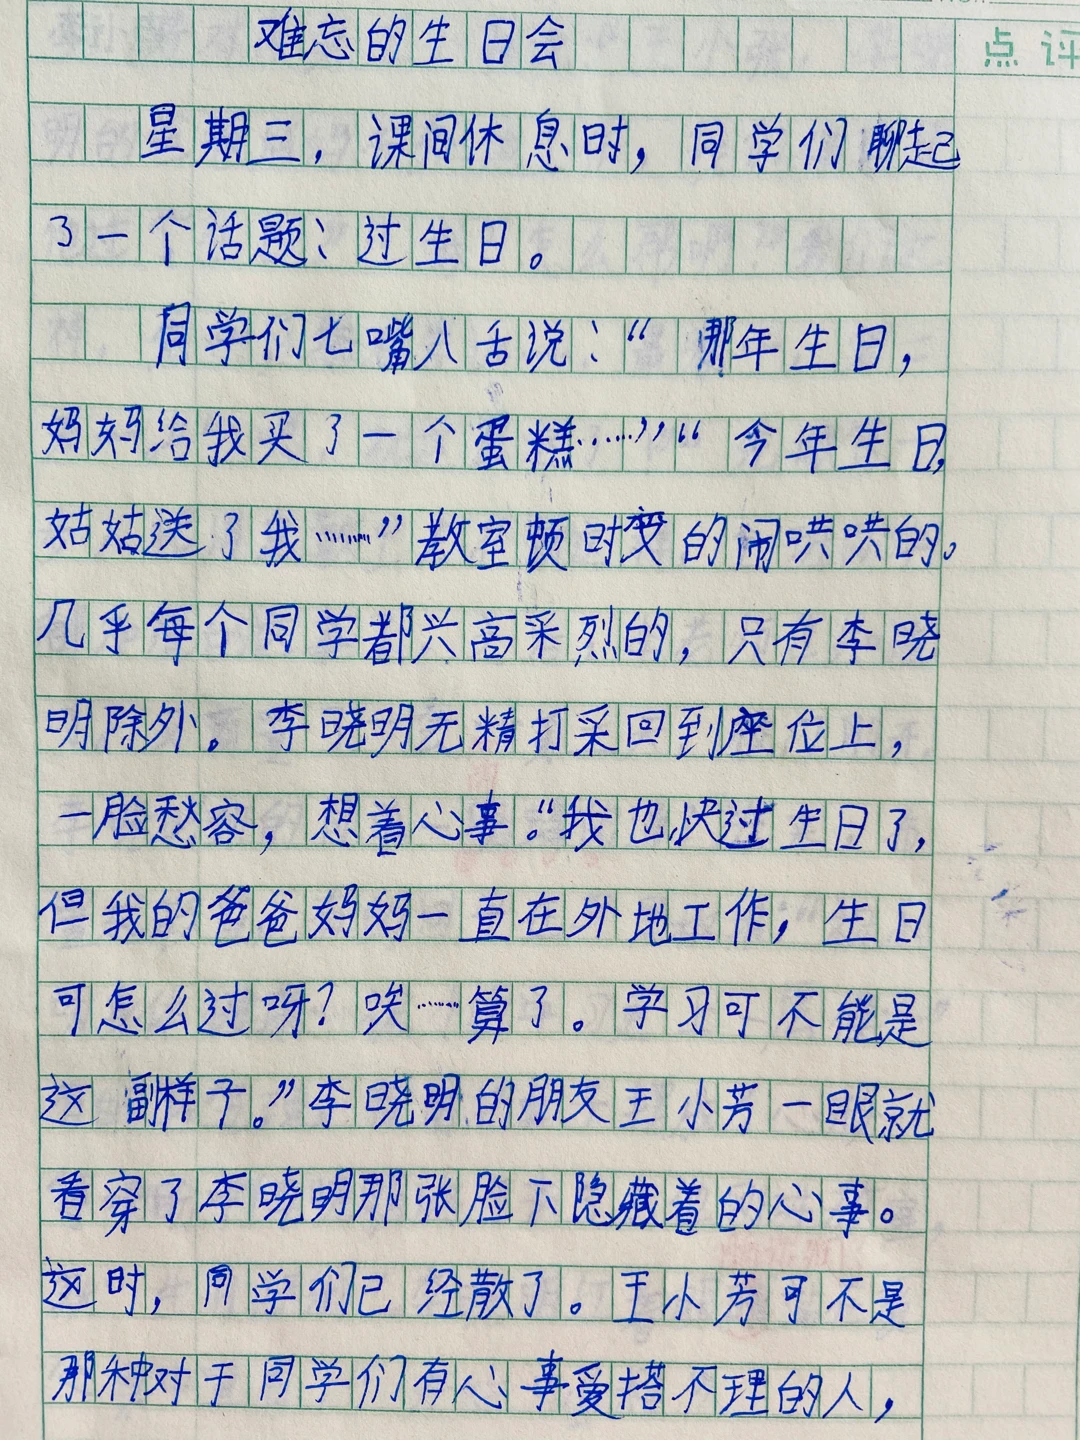 难忘的生日会
点评
星期三，课间休息时，同学们聊起
了一个话题：过生日。
同学们七嘴八舌说：“那年生日，
妈妈给我买了一个蛋糕……”“今年生日，
姑姑送了我……”教室顿时变的闹哄哄的。
几乎每个同学都兴高采烈的，只有李晓
明除外。李晓明无精打采回到座位上，
一脸愁容，想着心事。“我也快过生日了，
但我的爸爸妈妈一直在外地工作，生日
可怎么过呀？唉……算了。学习可不能是
这副样子。”李晓明的朋友王小芳一眼就
看穿了李晓明那张脸下隐藏着的心事。
这时，同学们已经散了。王小芳可不是
那种对于同学们有心事爱搭不理的人，